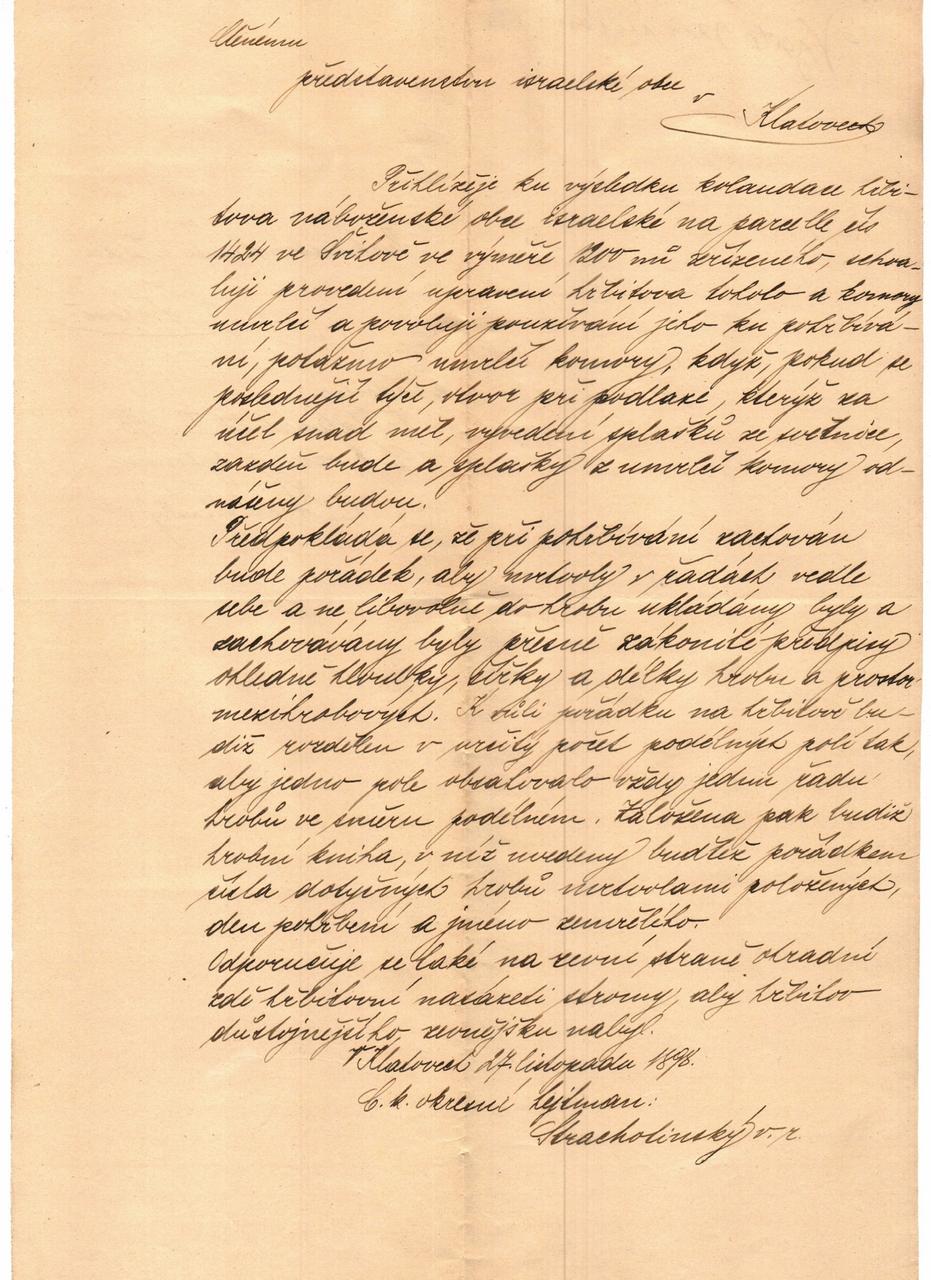 Ctěnému
představenstvu israelské obce
v
Klatovech
Přihlížeje ku výsledku kolaudace hřbi-
tova náboženské obce israelské na parcelle čís
1424 ve Švihově ve výměře 1200 m² zřízeného, schva-
luji provedení upravení hřbitova tohoto a komory
umrlčí a povoluji používání jeho ku pohřbívá-
ní, potažmo umrlčí komory, když, pokud se
poslednější týče, otvor při podlaze, kterýž za
účel snad měl, vyvedení splašků ze světnice,
zazděn bude a splašky z umrlčí komory od-
nášeny budou.
Předpokládá se, že při pohřbívání zachován
bude pořádek, aby mrtvoly v řadách vedle
sebe a ne libovolně do hrobu ukládány byly a
zachovávány byly přesně zákonité předpisy
ohledně hloubky, šířky a délky hrobu a prostor
mezihrobových. K vůli pořádku na hřbitově bu-
diž rozdělen v určitý počet podélných polí tak,
aby jedno pole obsahovalo vždy jednu řadu
hrobů ve směru podélném. Založena pak budiž
hrobní kniha, v níž uvedeny buďtež pořádkem
čísla dotyčných hrobů mrtvolami položených,
den pohřbení a jméno zemřelého.
Odporučuje se také na zevní straně ohradní
zdi hřbitovní nasázeti stromy, aby hřbitov
důstojnějšího zevnějšku nabyl.
V Klatovech 27. listopadu 1898.
C. k. okresní hejtman:
Strachotinský v. r.